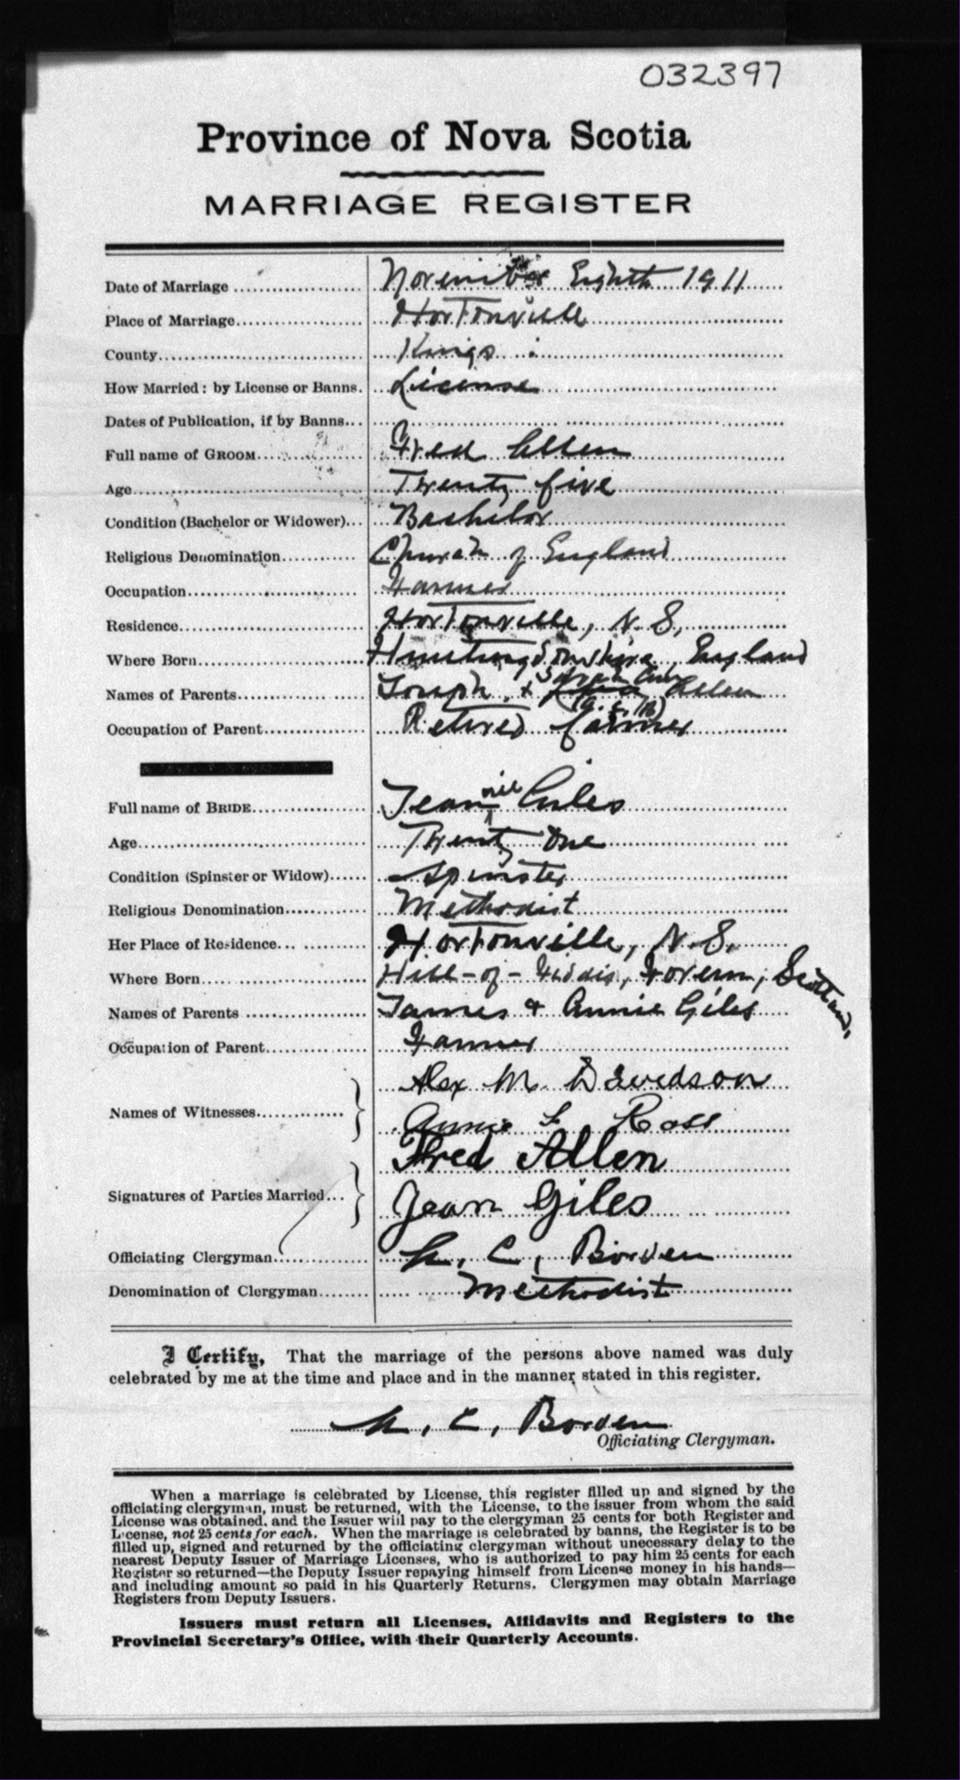 032397
Province of Nova Scotia
MARRIAGE REGISTER
Date of Marriage November Eighth 1911
Place of Marriage Hortonville
County Kings
How Married: by License or Banns. License
Dates of Publication, if by Banns
Full name of GROOM Fred Allen
Age Twenty five
Condition (Bachelor or Widower) Bachelor
Religious Denomination Church of England
Occupation Farmer
Residence Hortonville, N. S.
Where Born Huntingdonshire, England
Sarah Ann
Names of Parents Joseph + Allen
Occupation of Parent Retired farmer
nie
Full name of BRIDE Jean Giles
Age Twenty One
Condition (Spinster or Widow) Spinster
Religious Denomination Methodist
Her Place of Residence Hortonville, N. S.
Where Born Hill-of-Fiddis, Foveran, Scotland,
Names of Parents James & Annie Giles
Occupation of Parent Farmer
Alex M. Davidson
Names of Witnesses
Annie F Ross
Fred Allen
Signatures of Parties Married
Jean Giles
Officiating Clergyman C, Borden
Denomination of Clergyman Methodist
I Certify, That the marriage of the persons above named was duly
celebrated by me at the time and place and in the manner stated in this register.
C, Borden
Officiating Clergyman.
When a marriage is celebrated by License, this register filled up and signed by the
officiating clergyman, must be returned, with the License, to the issuer from whom the said
License was obtained, and the Issuer will pay to the clergyman 25 cents for both Register and
License, not 25 cents for each. When the marriage is celebrated by banns, the Register is to be
filled up, signed and returned by the officiating clergyman without unecessary delay to the
nearest Deputy Issuer of Marriage Licenses, who is authorized to pay him 25 cents for each
Register so returned—the Deputy Issuer repaying himself from License money in his hands—
and including amount so paid in his Quarterly Returns. Clergymen may obtain Marriage
Registers from Deputy Issuers.
Issuers must return all Licenses, Affidavits and Registers to the
Provincial Secretary's Office, with their Quarterly Accounts.